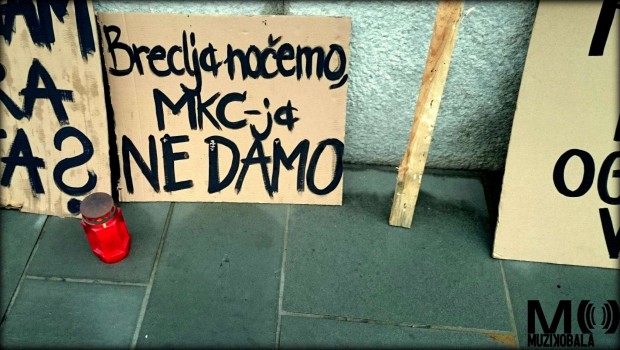 AM
KA
AS?
Breclja nočemo,
MKC-ja
NE DAMO
OG
V
MUZIKOBALA